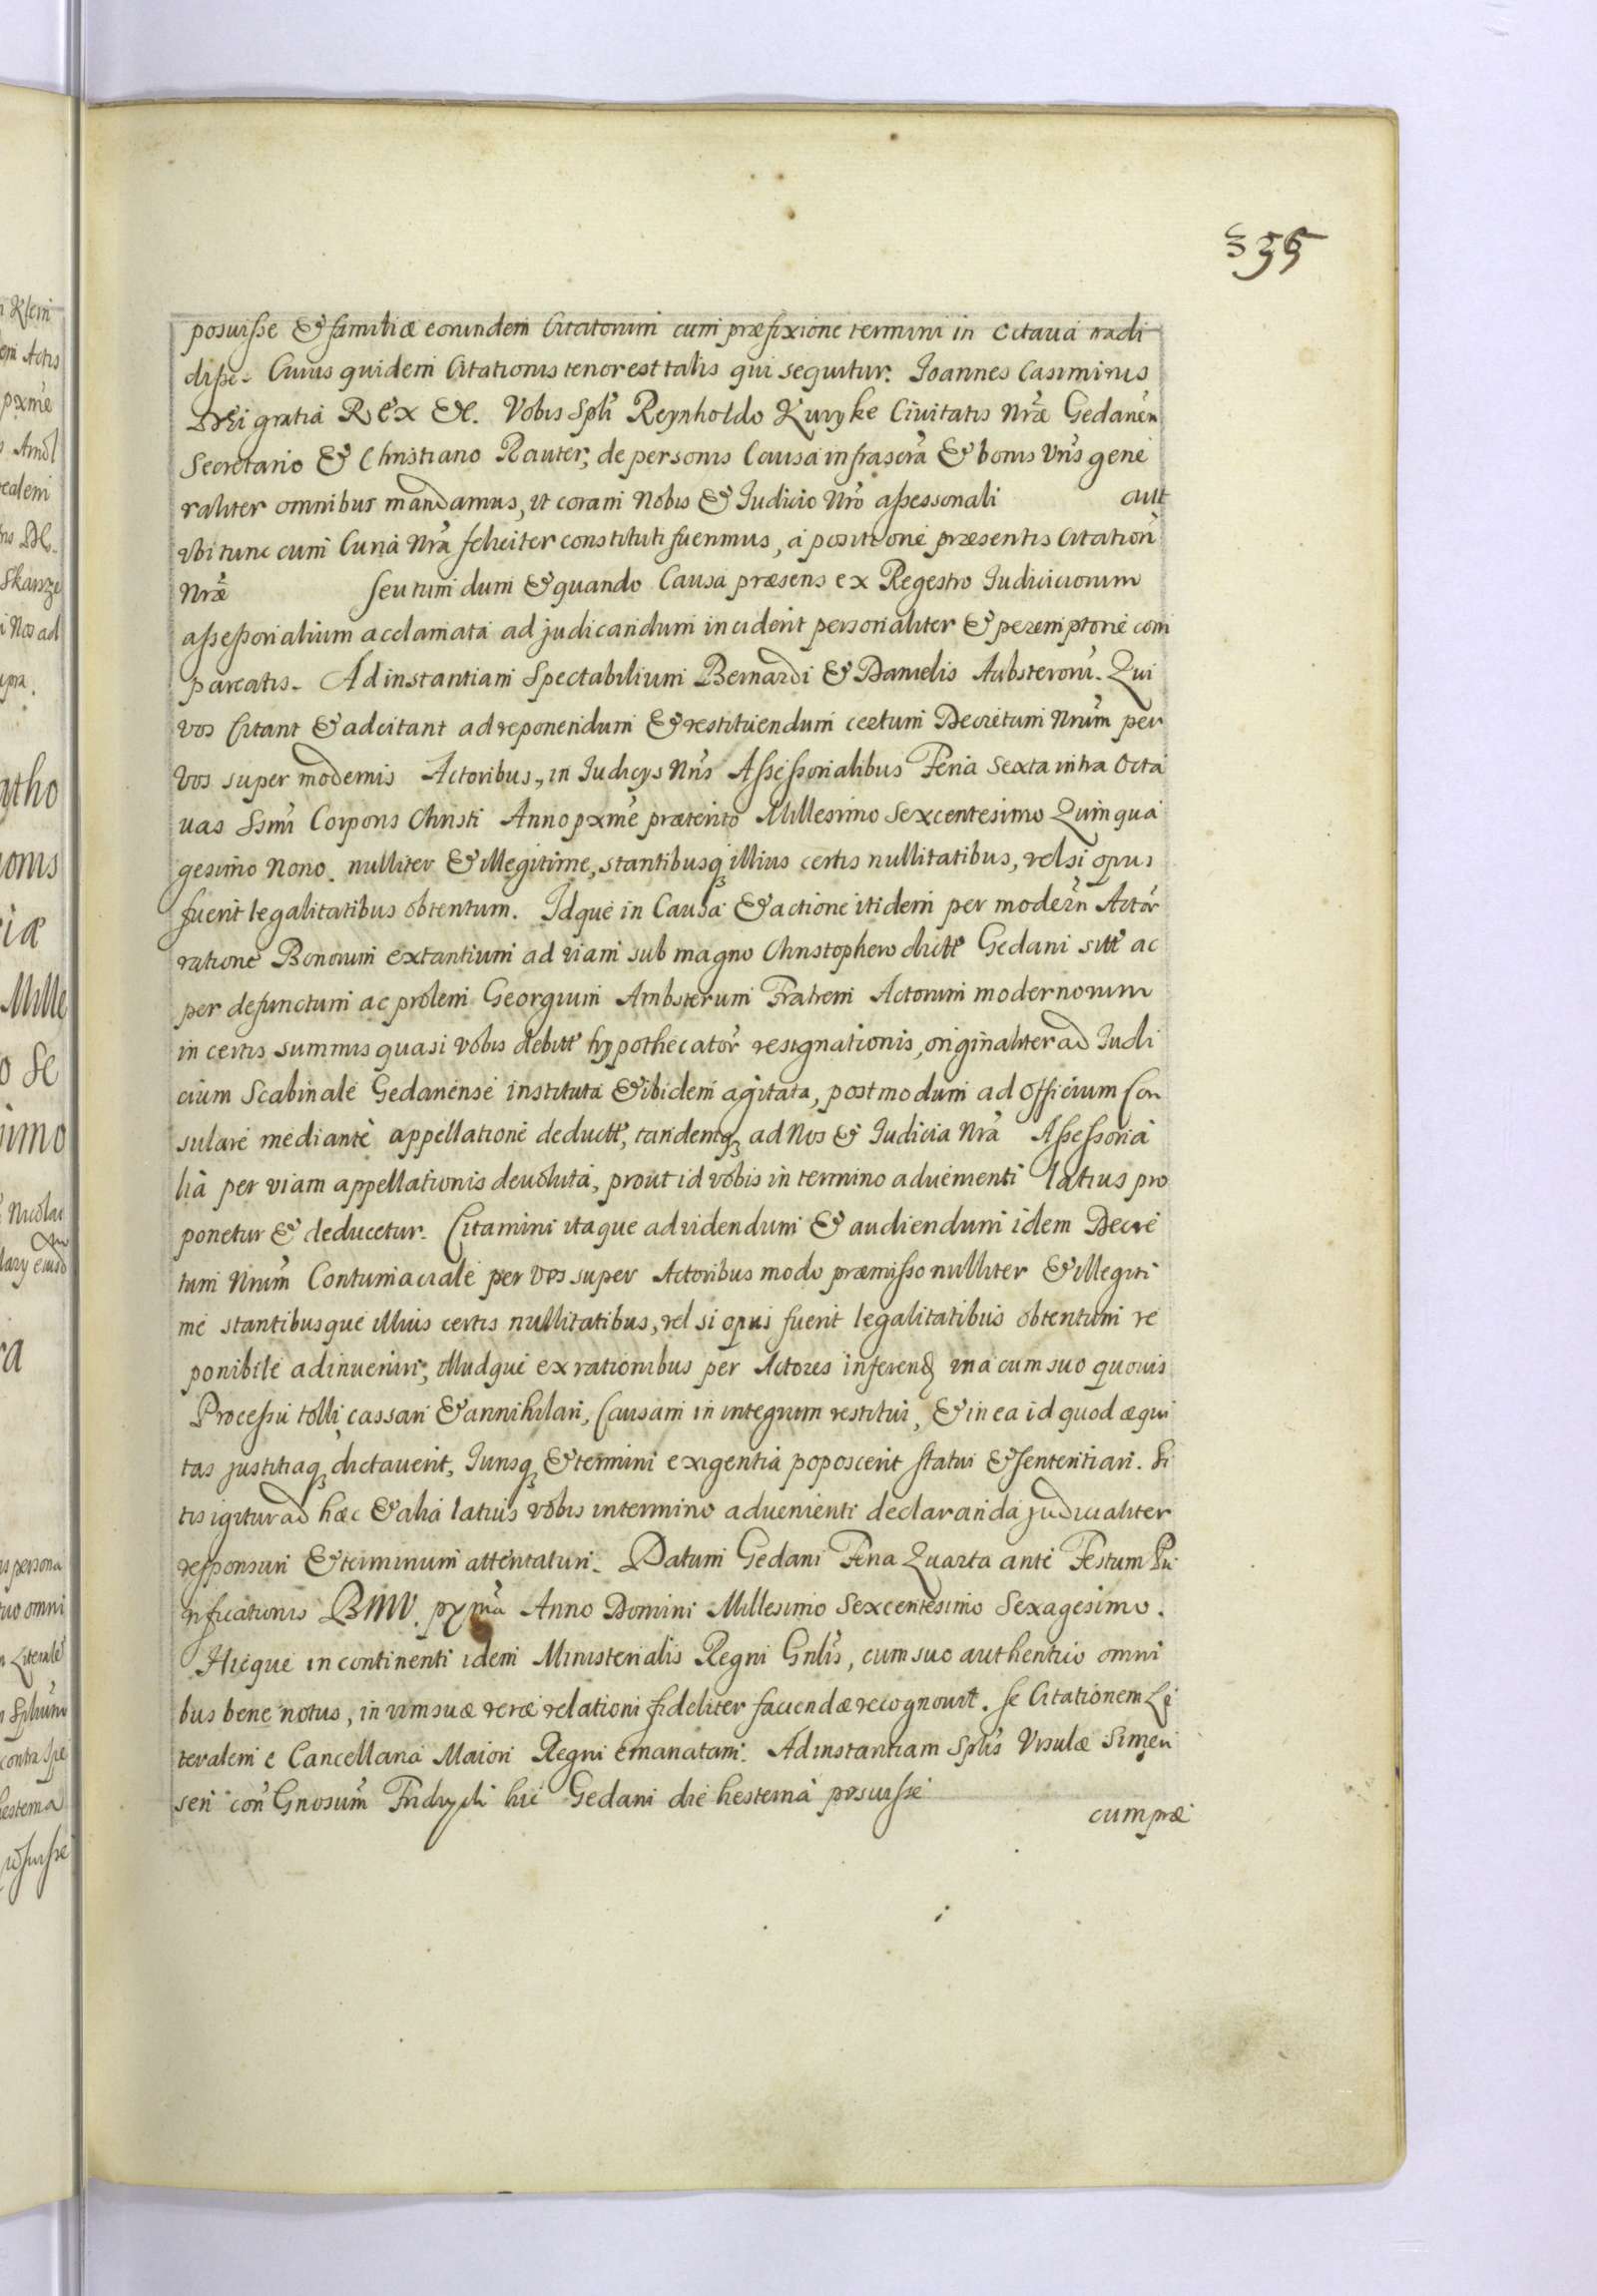 35
posuisse & familiæ eorundem Citatorum cum præfixione termini in octava tradi
disse. Cuius quidem Citationis tenor est talis qui sequitur. Joannes Casimirus
DEi gratia REX &c. Vobis Spli Reynholdo Kuryke Civitatis Nræ Gedanen
Secretario & Christiano Rauter, de personis Causa infrascra & bonis Vris gene
raliter omnibus mandamus, ut coram Nobis & Judicio Nro assessoriali aut
ubi tunc cum Curia Nra feliciter constituti fuerimus, a positione præsentis Citation
Nræ seu tum dum & quando Causa præsens ex Regestro Judiciorum
assessorialium acclamata ad judicandum inciderit personaliter & peremptorie com
pareatis. Ad instantiam Spectabilium Bernardi & Danielis Ambsteroru. Qui
vos Citant & adcitant ad reponendum & restituendum certum Decretum Nrum per
Vos super modernis Actoribus, in Judicys Nris Assessorialibus Feria Sexta intra Octa
uas Ssmi Corporis Christi Anno pxme præterito Millesimo Sexcentesimo Quinqua
gesimo Nono nulliter & illegitime, stantibusq illius certis nullitatibus, vel si opus
fuerit legalitatibus obtentum. Idque in Causa & actione itidem per modern Actor
ratione Bonorum extantium ad viam sub magno Christophero dictt Gedani sitt ac
per defunctum ac prolem Georgium Ambsterum Fratrem Actorum modernorum
in certis summis quasi vobis debitt hypothecator resignationis, originaliter ad Judi
cium Scabinale Gedanense instituta & ibidem agitata, postmodum ad Officium Con
sulare mediante appellatione deductt, tandemq ad Nos & Judicia Nra Assessoria
lia per viam appellationis devoluta, prout id vobis in termino advenienti latius pro
ponetur & deducetur. Citamini itaque ad videndum & audiendum idem Decre
tum Nrum Contumaciale per vos super Actoribus modo præmisso nulliter & illegiti
me stantibusque illius certis nullitatibus, vel si opus fuerit legalitatibus obtentum re
ponibile adinveniri, illudque ex rationibus per Actores inferend una cum suo quovis
Processu tolli, cassari & annihilari, Causam in integrum restitui, & in ea id quod æqui
tas justitiaq dictaverit, Jurisq & termini exigentia poposcerit statui & sententiari. Si
tis igitur ad hæc & alia latius vobis in termino advenienti declaranda judicialiter
responsuri & terminum attentaturi. Datum Gedani Feria Quarta ante Festum Pu
rificationis BMV. pxma Anno Domini Millesimo Sexcentesimo Sexagesimo.
Hicque in continenti idem Ministerialis Regni Gnlis, cum suo authentico omni
bus bene notus, in vim suæ veræ relationi fideliter faciendæ recognovit. Se Citationem Li
teralem e Cancellaria Maiori Regni emanatam. Ad instantiam Splis Ursulæ Simen
sen con Gnosum Fridrych hic Gedani die hesterna posuisse
cum præ